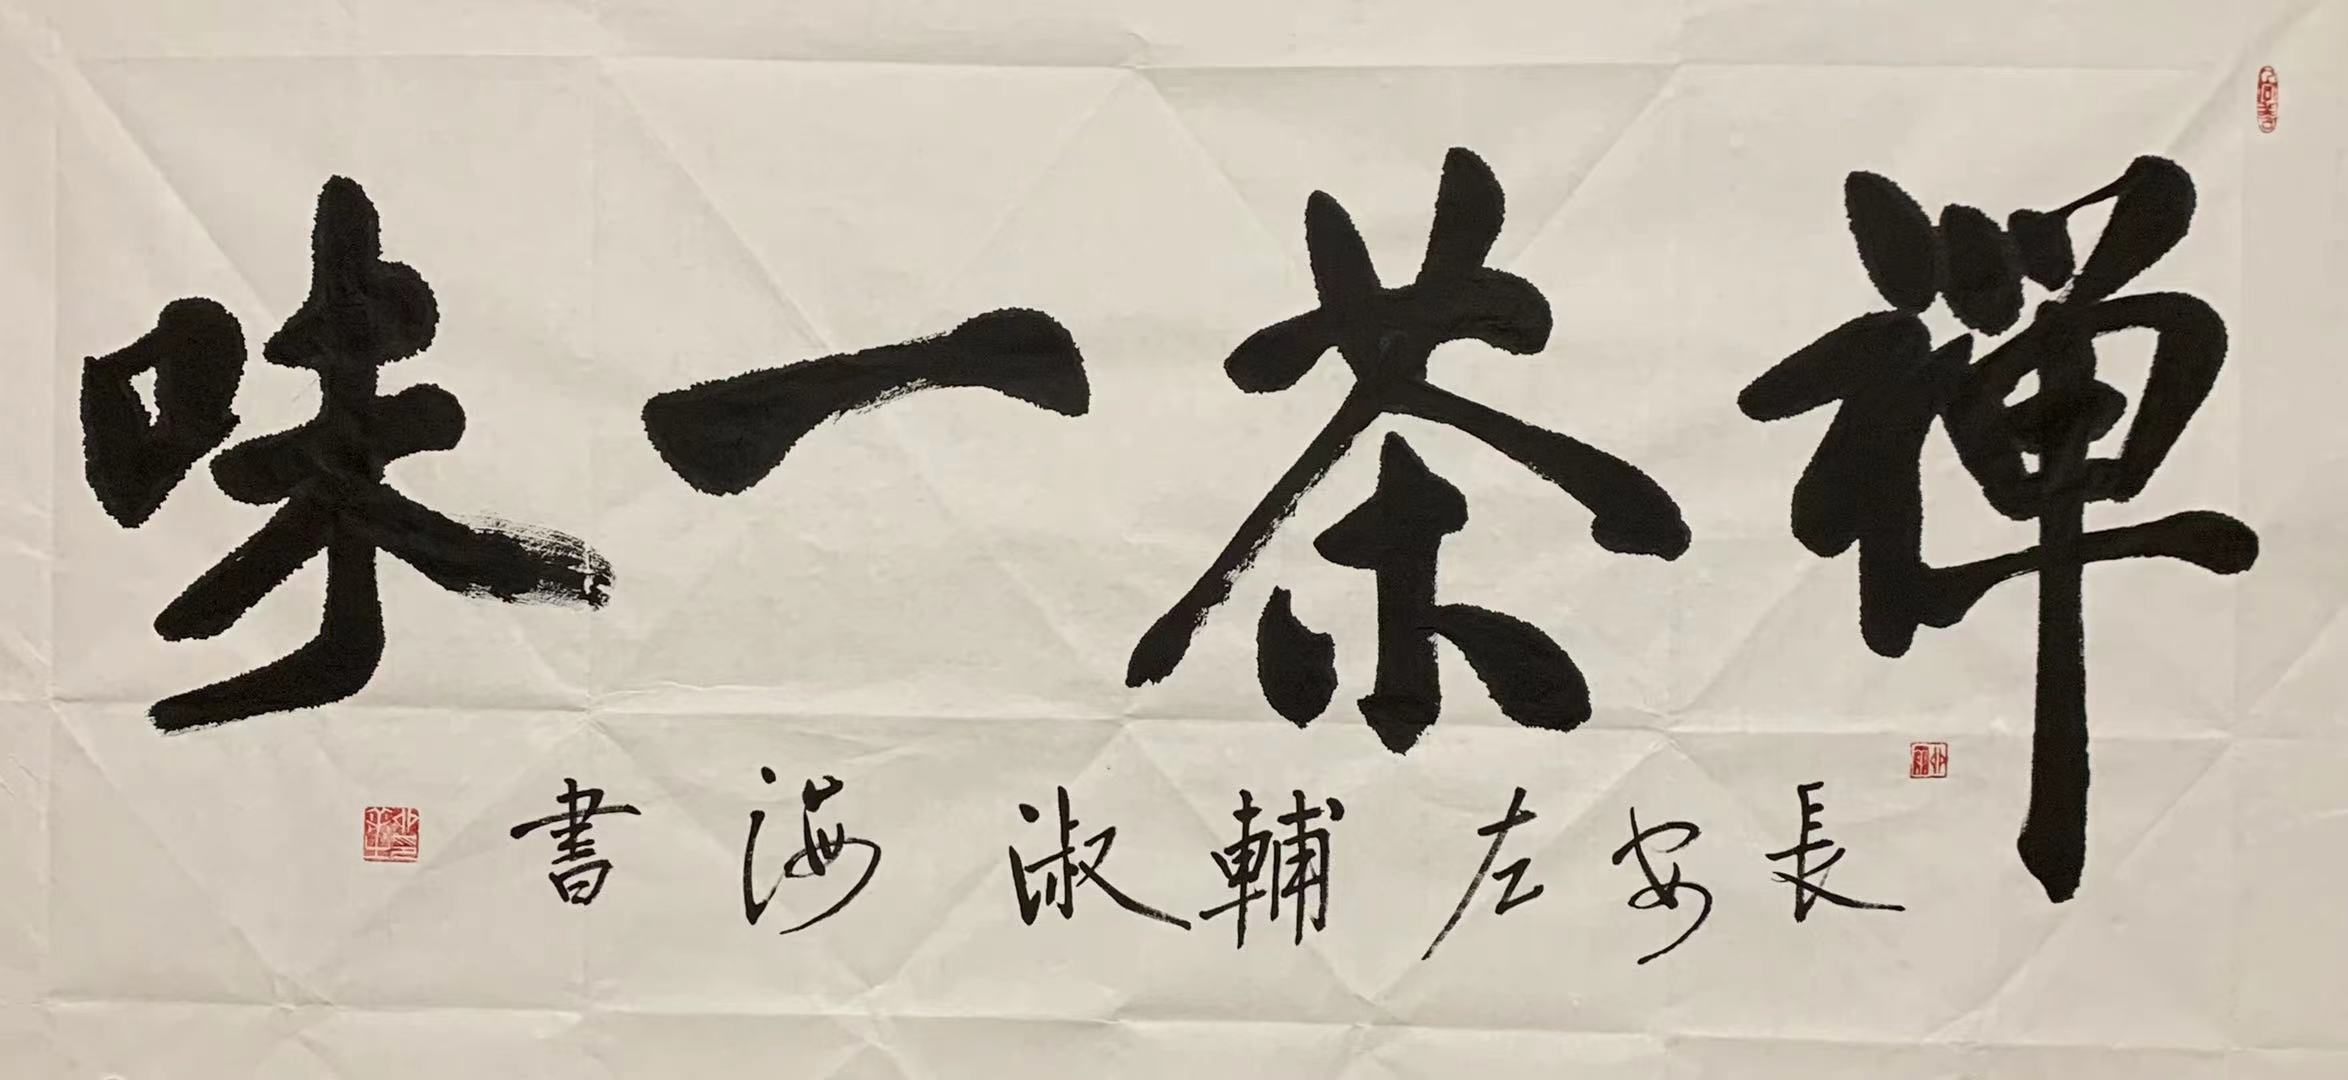 禪茶一味
長安左輔淑海書